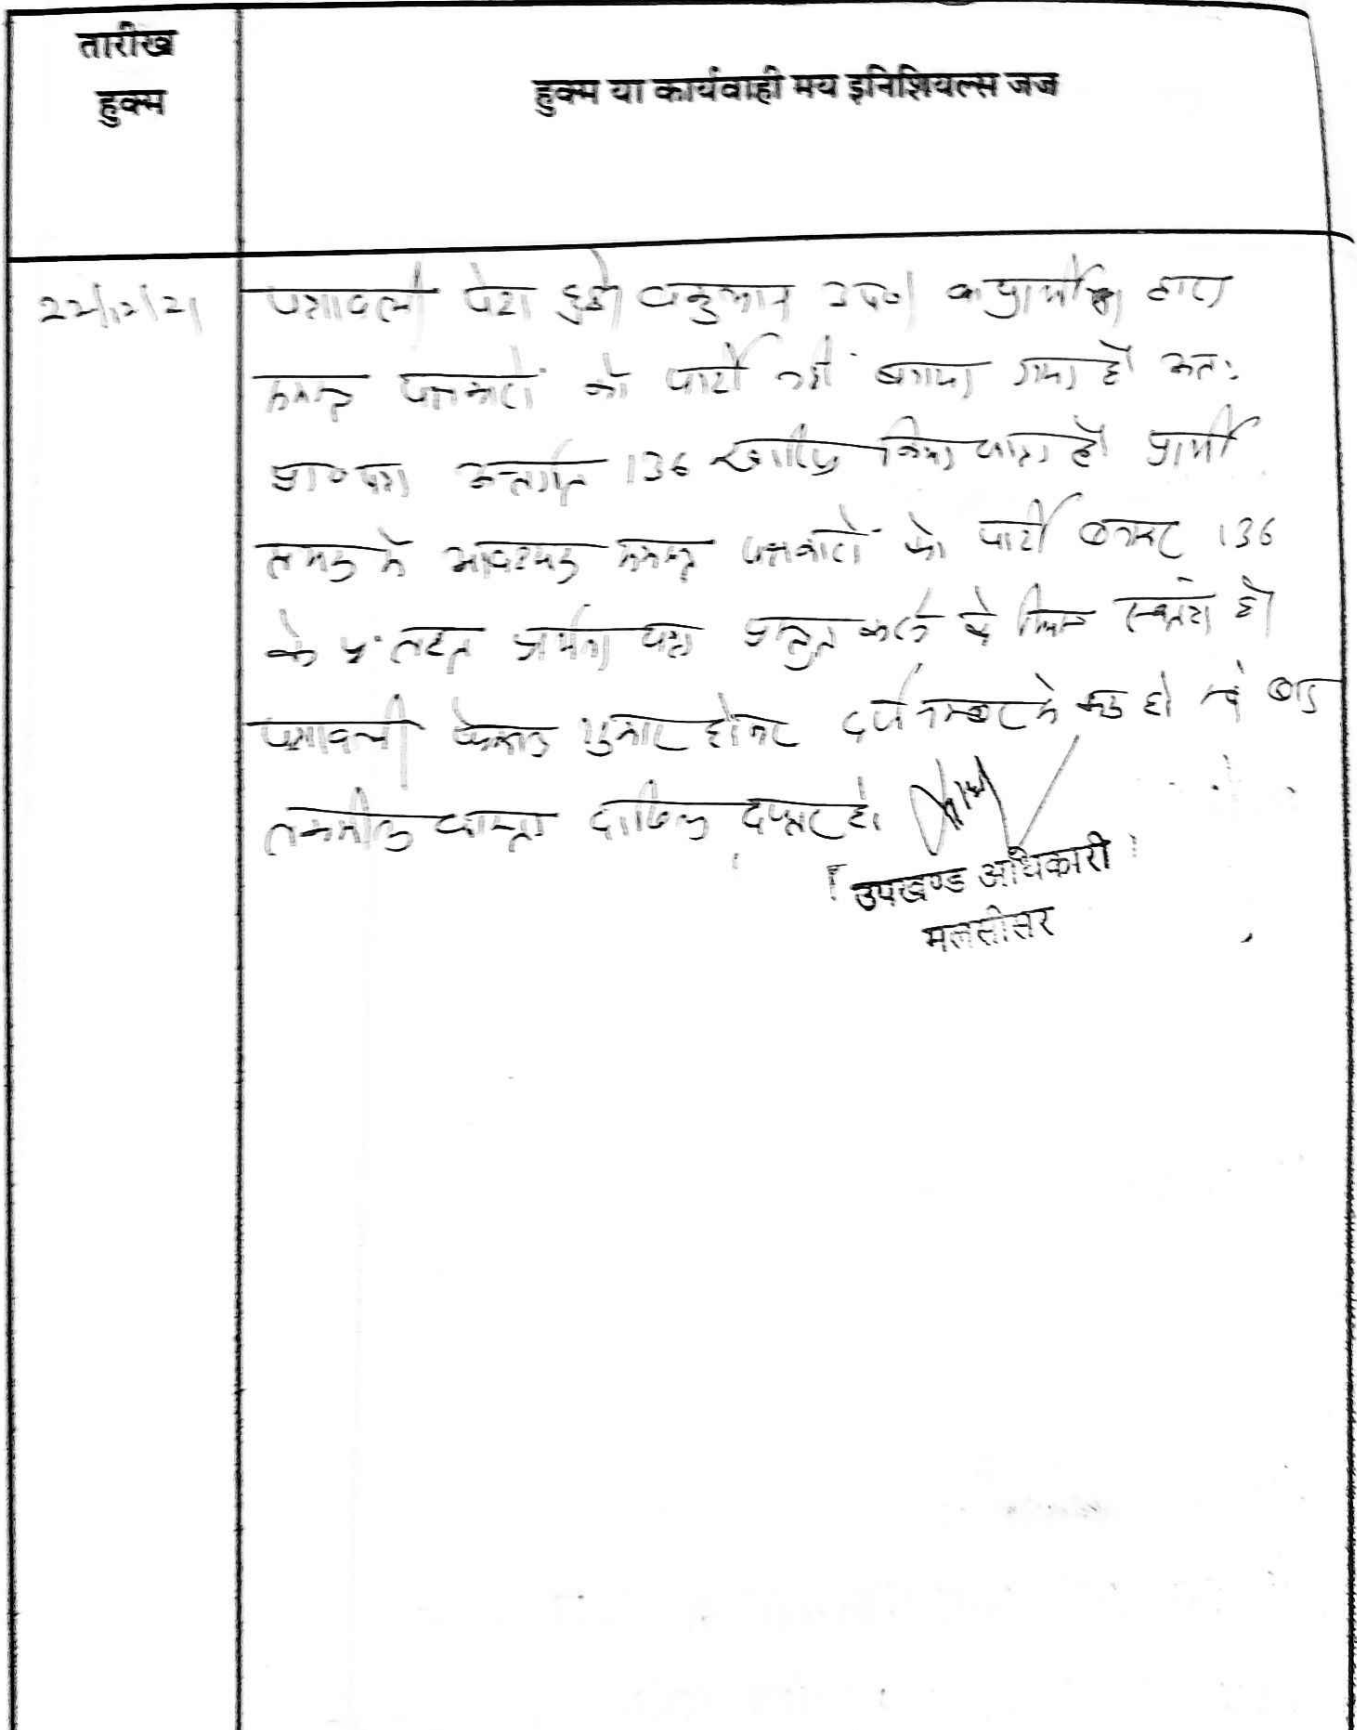 तारीख
हुक्म
हुक्म या कार्यवाही मय इनिशियल्स जज
22/12/21 पत्रावली पेश हुई। वकुलान उप०। प्रार्थी द्वारा
समस्त पक्षकारों को पार्टी नहीं बनाया गया है। अतः
प्रा० पत्र अन्तर्गत 136 खारिज किया जाता है। प्रार्थी
में आवश्यक समस्त पक्षकारों को पार्टी बनाकर 136
के तहत प्रार्थना पत्र प्रस्तुत करने के लिए स्वतंत्र है।
पत्रावली फैसल शुमार होकर दर्ज नम्बर से कम हो बाद
तकमील दाखिल दफ्तर हो।
उपखण्ड अधिकारी
मलसीसर